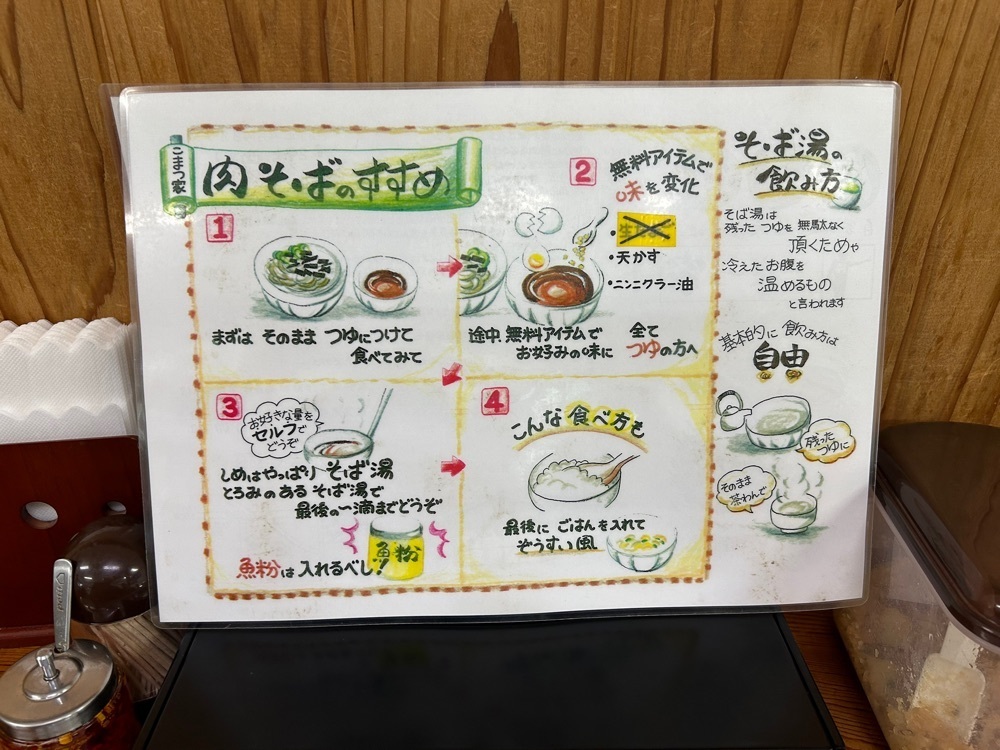 こまつ家
肉そばのすすめ
1
まずは そのまま つゆにつけて
食べてみて
2
無料アイテムで
味を変化
・天かす
・ニンニクラー油
途中 無料アイテムで
お好みの味に
全て
つゆの方へ
3
お好きな量を
セルフで
どうぞ
しめはやっぱり そば湯
とろみのある そば湯で
最後の一滴までどうぞ
魚粉
魚粉は入れるべし!
4
こんな食べ方も
最後に ごはんを入れて
ぞうすい風
そば湯の
飲み方
そば湯は
残った つゆを 無駄なく
頂くためや
冷えたお腹を
温めるもの
と言われます
基本的に 飲み方は
自由
残った
つゆに
そのまま
茶わんで